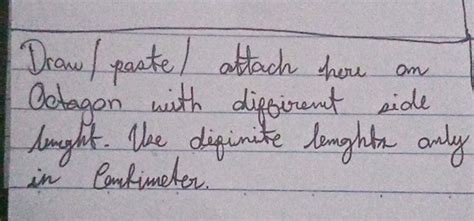 Draw/ paste/ attach here an
Octagon with diffirent side
lenght. Use definite lenghts only
in Centimeter.